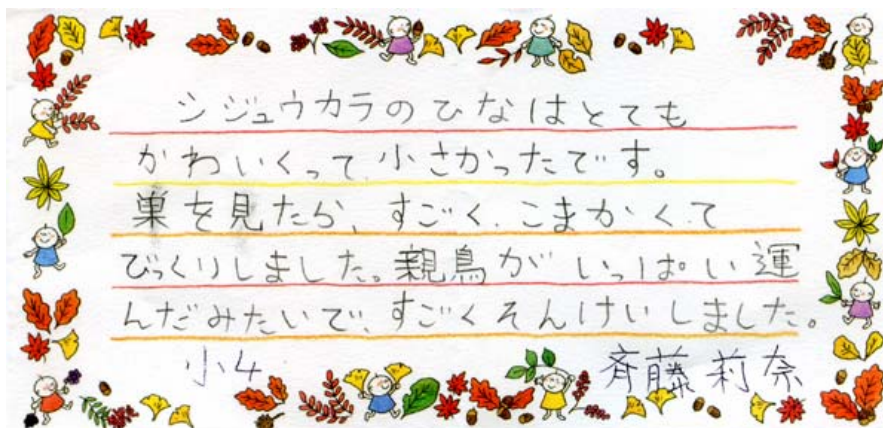 シジュウカラのひなはとても
かわいくって小さかったです。
巣を見たら、すごく、こまかくて
びっくりしました。親鳥がいっぱい運
んだみたいで、すごくそんけいしました。
小4 斉藤莉奈